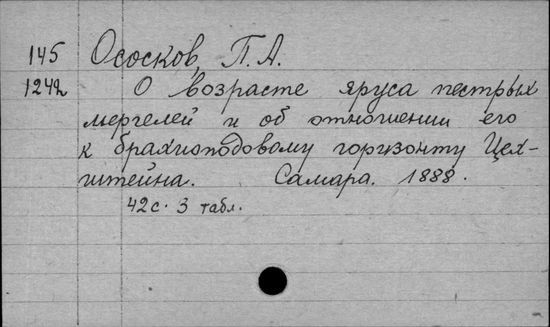 145 Ососков, П. А.
1242 О возрасте яруса пестрых
мергелей и об отношении его
к брахиоподовому горизонту Цех-
штейна. Самара. 1888.
42 с. 3 табл.